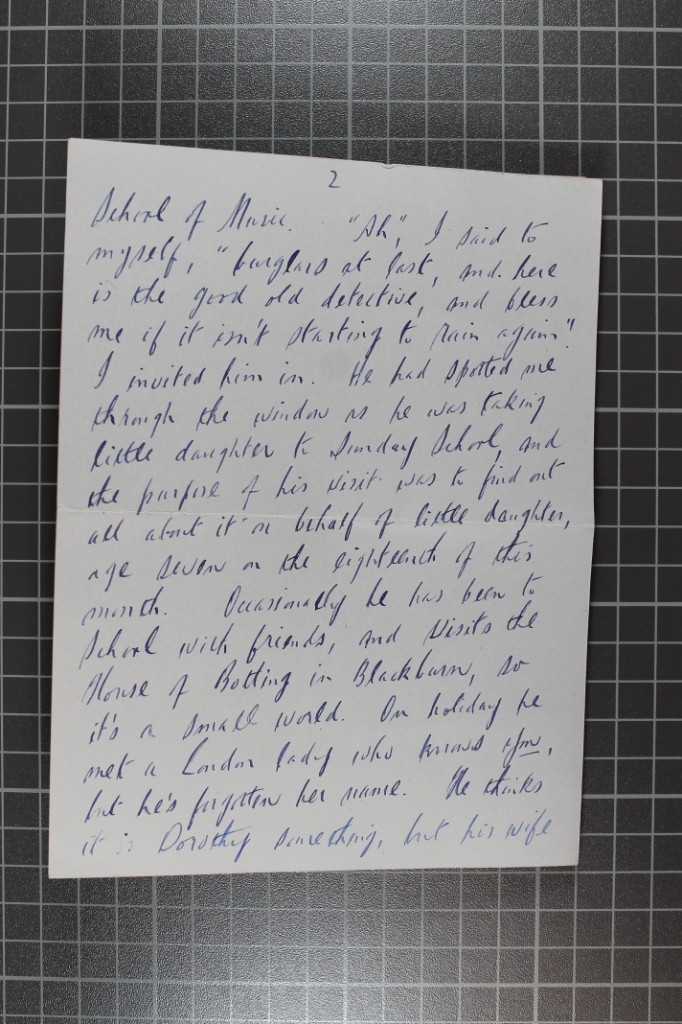 2
School of Music. "Ah", I said to
myself, "burglars at last, and here
is the good old detective, and bless
me if it isn't starting to rain again".
I invited him in. He had spotted me
through the window as he was taking
little daughter to Sunday School, and
the purpose of his visit was to find out
all about it on behalf of little daughter,
age seven on the eighteenth of this
month. Occasionally he has been to
School with friends, and visits the
House of Botting in Blackburn, so
it's a small world. On holiday he
met a London lady who knows you,
but he's forgotten her name. He thinks
it is Dorothy something, but his wife